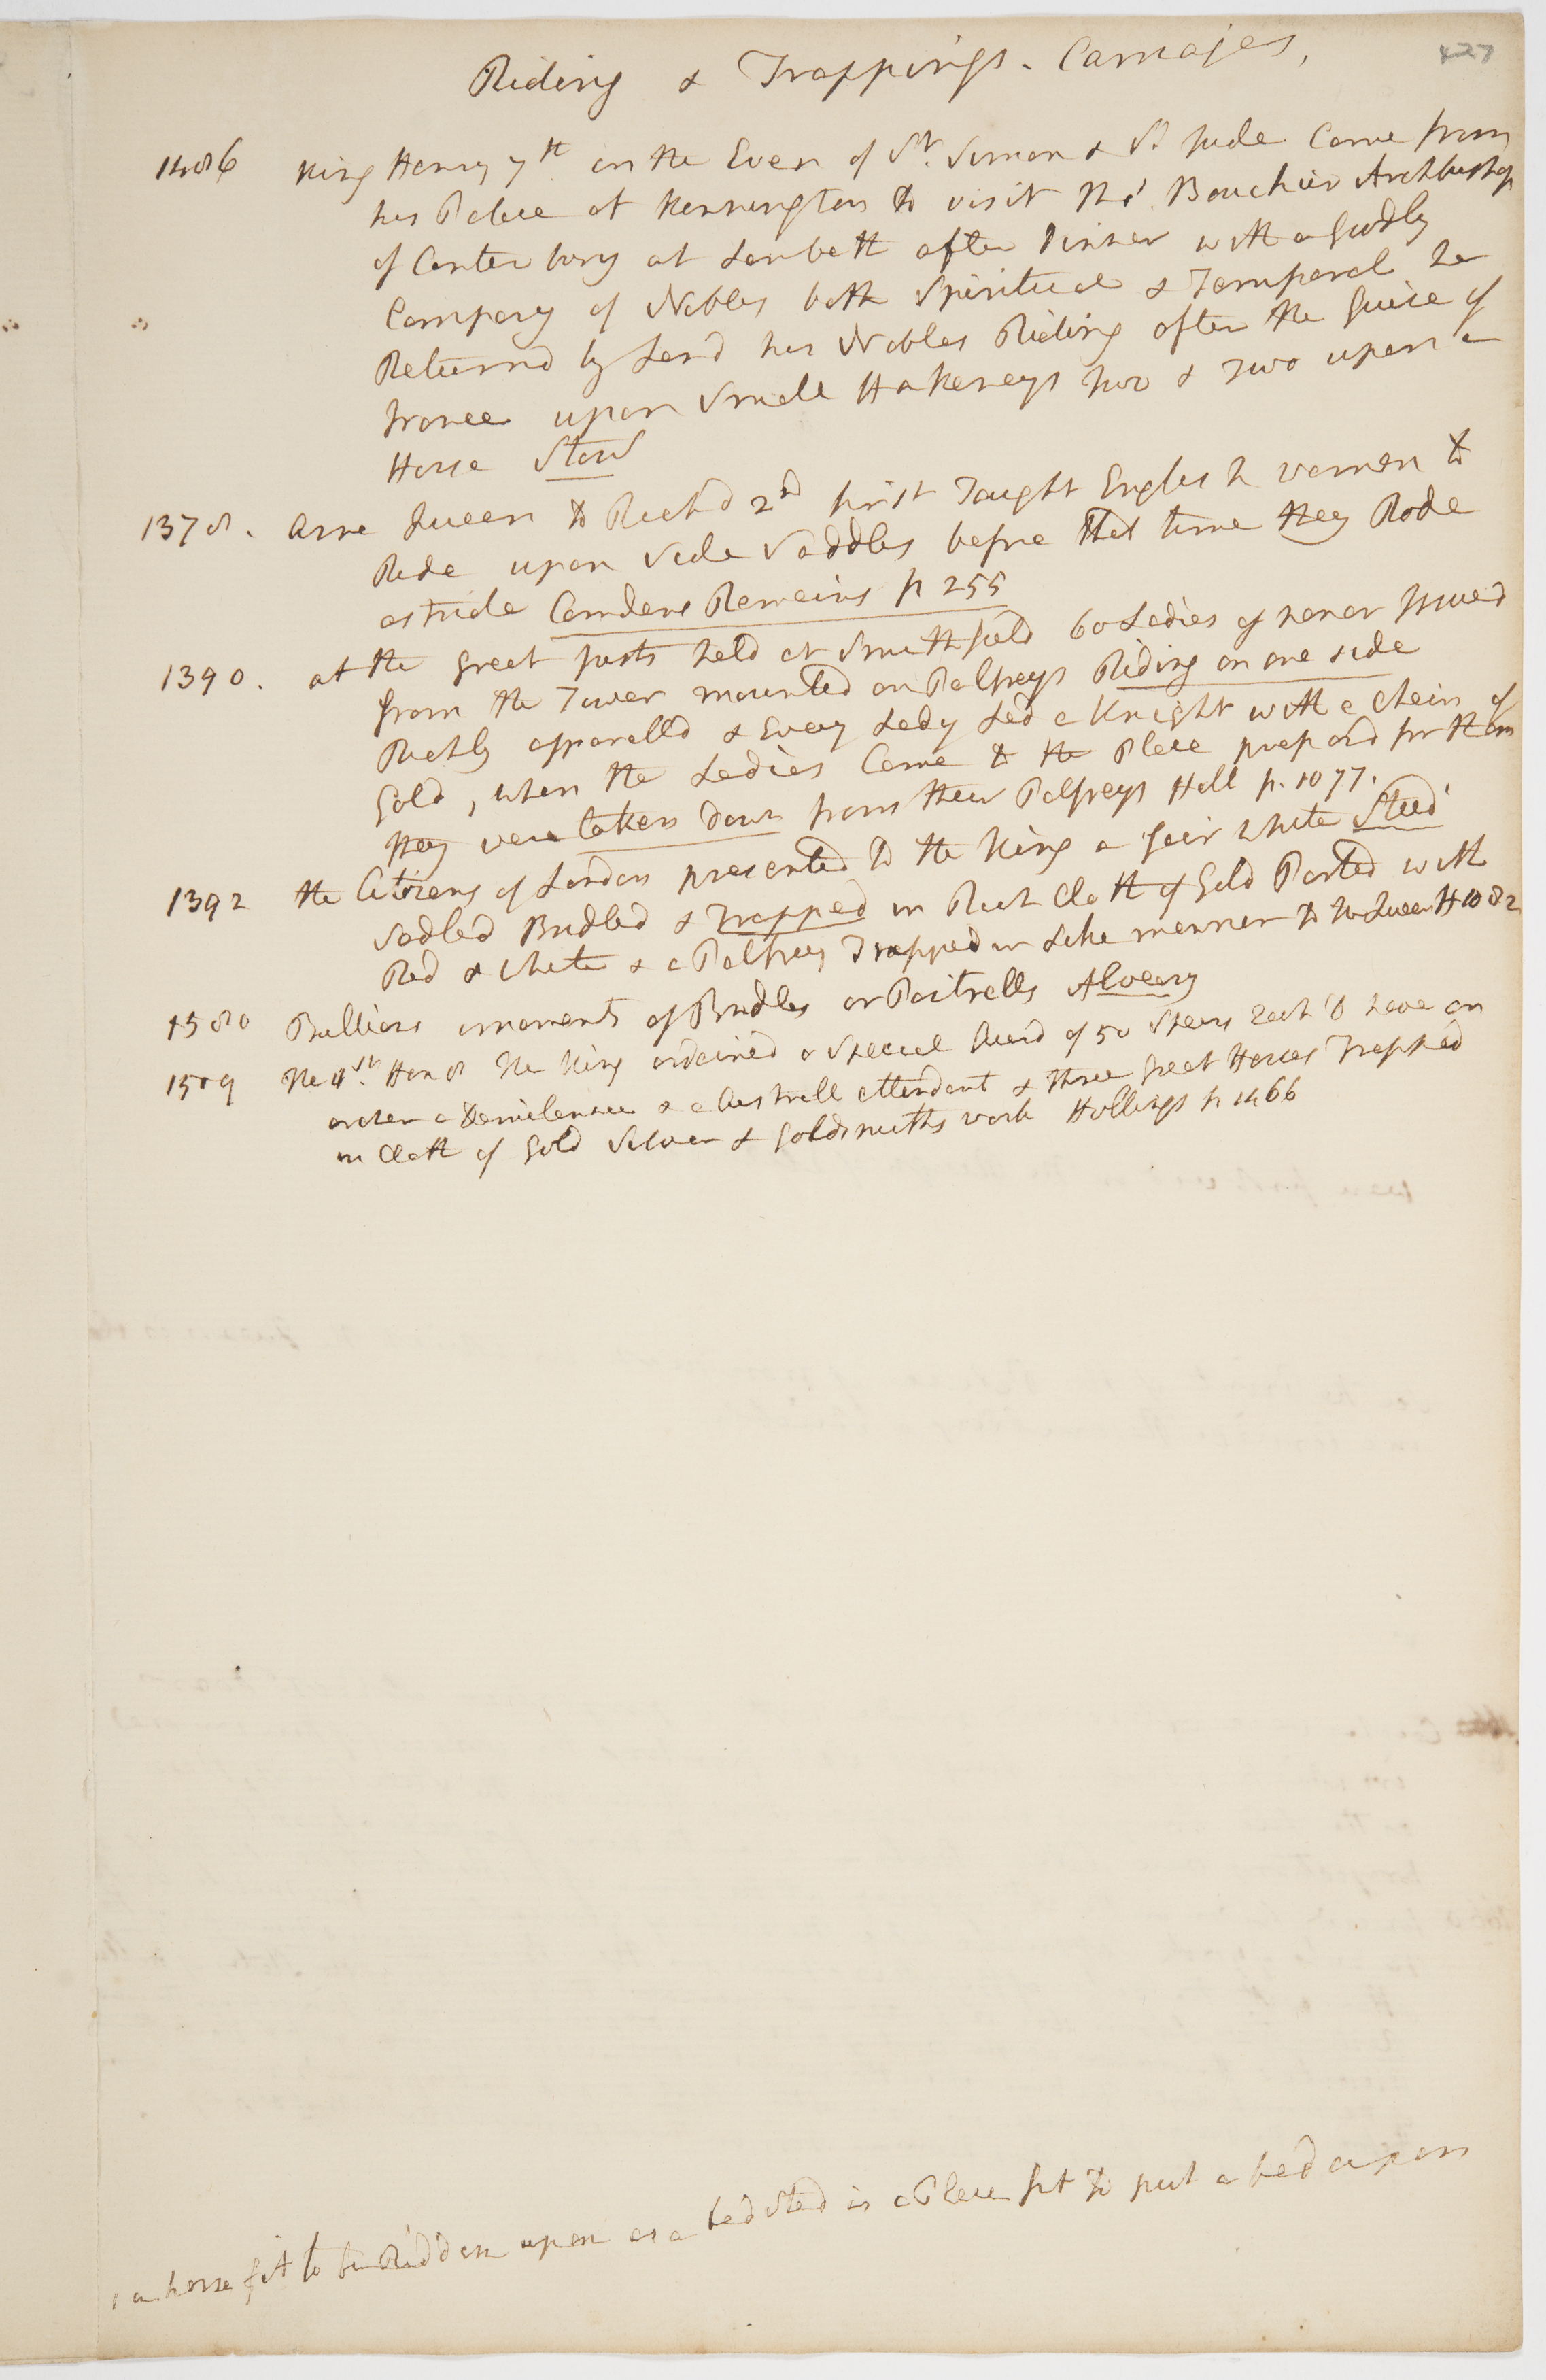 427
Riding & Trappings. Carriages,
1486 King Henry 7th on the Even of St. Simon & St Jude Came from
his Palace at Kennington to visit Thos. Bouchier Archbishop
of Canterbury at Lambeth after Dinner with a goodly
Company of Nobles both Spiritual & Temporal he
Returnd by Land his Nobles Riding after the guise of
France upon Smale Hakeneys two & two upon a
Horse Stow
1378. Anne Queen to Richd 2d first Taught English women to
Ride upon Side Saddles before that time they Rode
astride Camdens Remains p 255
1390. at the great justs held at Smithfield 60 Ladies of honor Issued
from the Tower mounted on Palfreys Riding on one side
Richly apparelld & Every Lady Led a Knight with a Chain of
Gold, when the Ladies Came to the Place prepard for them
they were taken down from their Palfreys Hall p. 1077.
1392 the Citizens of London presented to the King a fair white Steed'
Sadled Bridled & Trapped in Rich Cloth of Gold Parted with
Red & white & a Palfrey Trapped in Like manner to the Queen H 1082
1580 Bullions ornaments of Bridles or Poitrells Alveary
1509 The 1st. Hen 8 The King ordained a Special Guard of 50 Spears Each to have an
archer a Demilance & a Custrell attendant & three great Horses Trapped
in Cloth of Gold Silver & Goldsmiths work Hollings p 1466
' a horse fit to be Ridden upon as a bed sted is a Place fit to put a bed upon